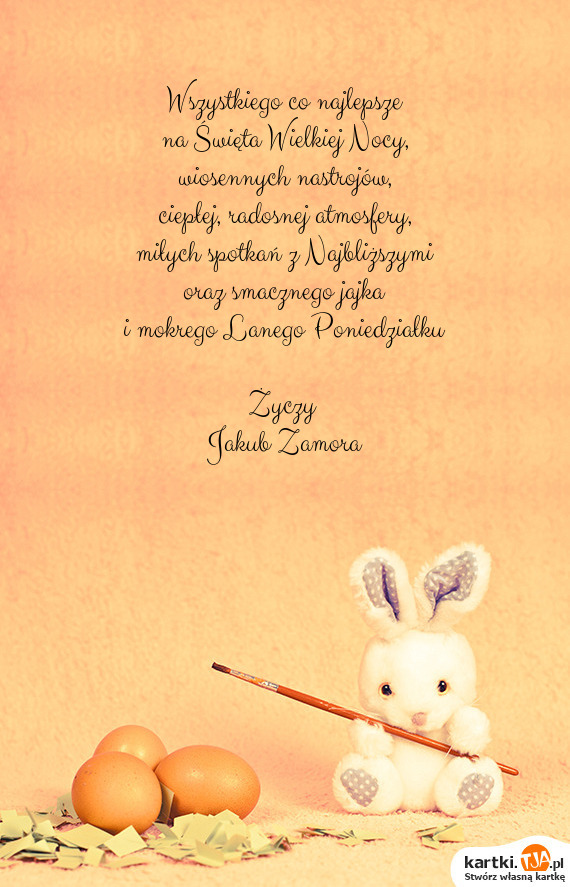 Wszystkiego co najlepsze
na Święta Wielkiej Nocy,
wiosennych nastrojów,
ciepłej, radosnej atmosfery,
miłych spotkań z Najbliższymi
oraz smacznego jajka
i mokrego Lanego Poniedziałku
Życzy
Jakub Zamora
kartki.TJA.pl
Stwórz własną kartkę